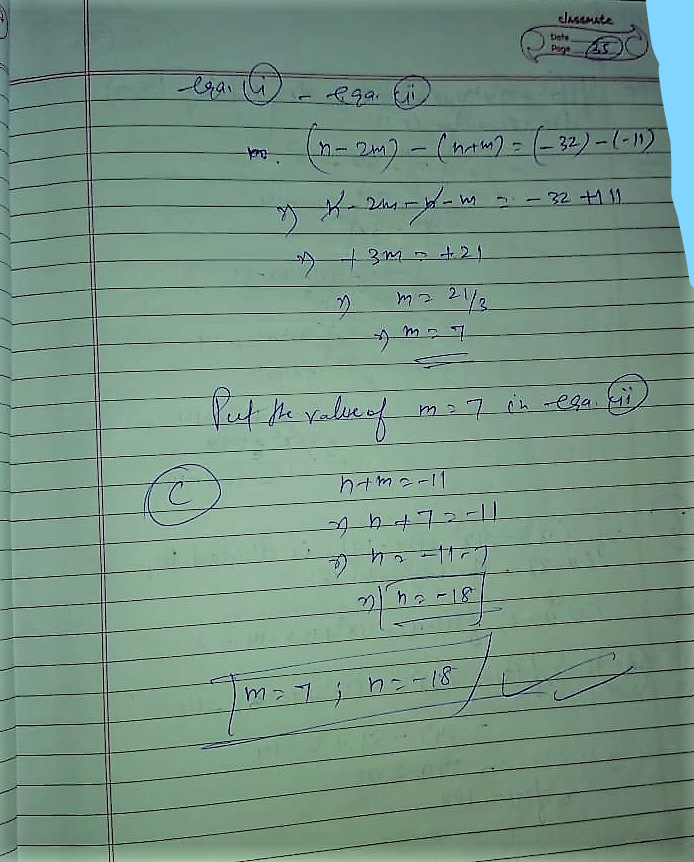 classmate
Date
Page 25
eqn. (i) - eqn. (ii)
(n - 2m) - (n+m) = (-32) - (-11)
⇒ n - 2m - n - m = -32 + 11
⇒ + 3m = +21
⇒ m = 21/3
⇒ m = 7
Put the value of m = 7 in eqn. (ii)
C
n+m = -11
⇒ n + 7 = -11
⇒ n = -11 - 7
⇒ n = -18
m = 7 ; n = -18